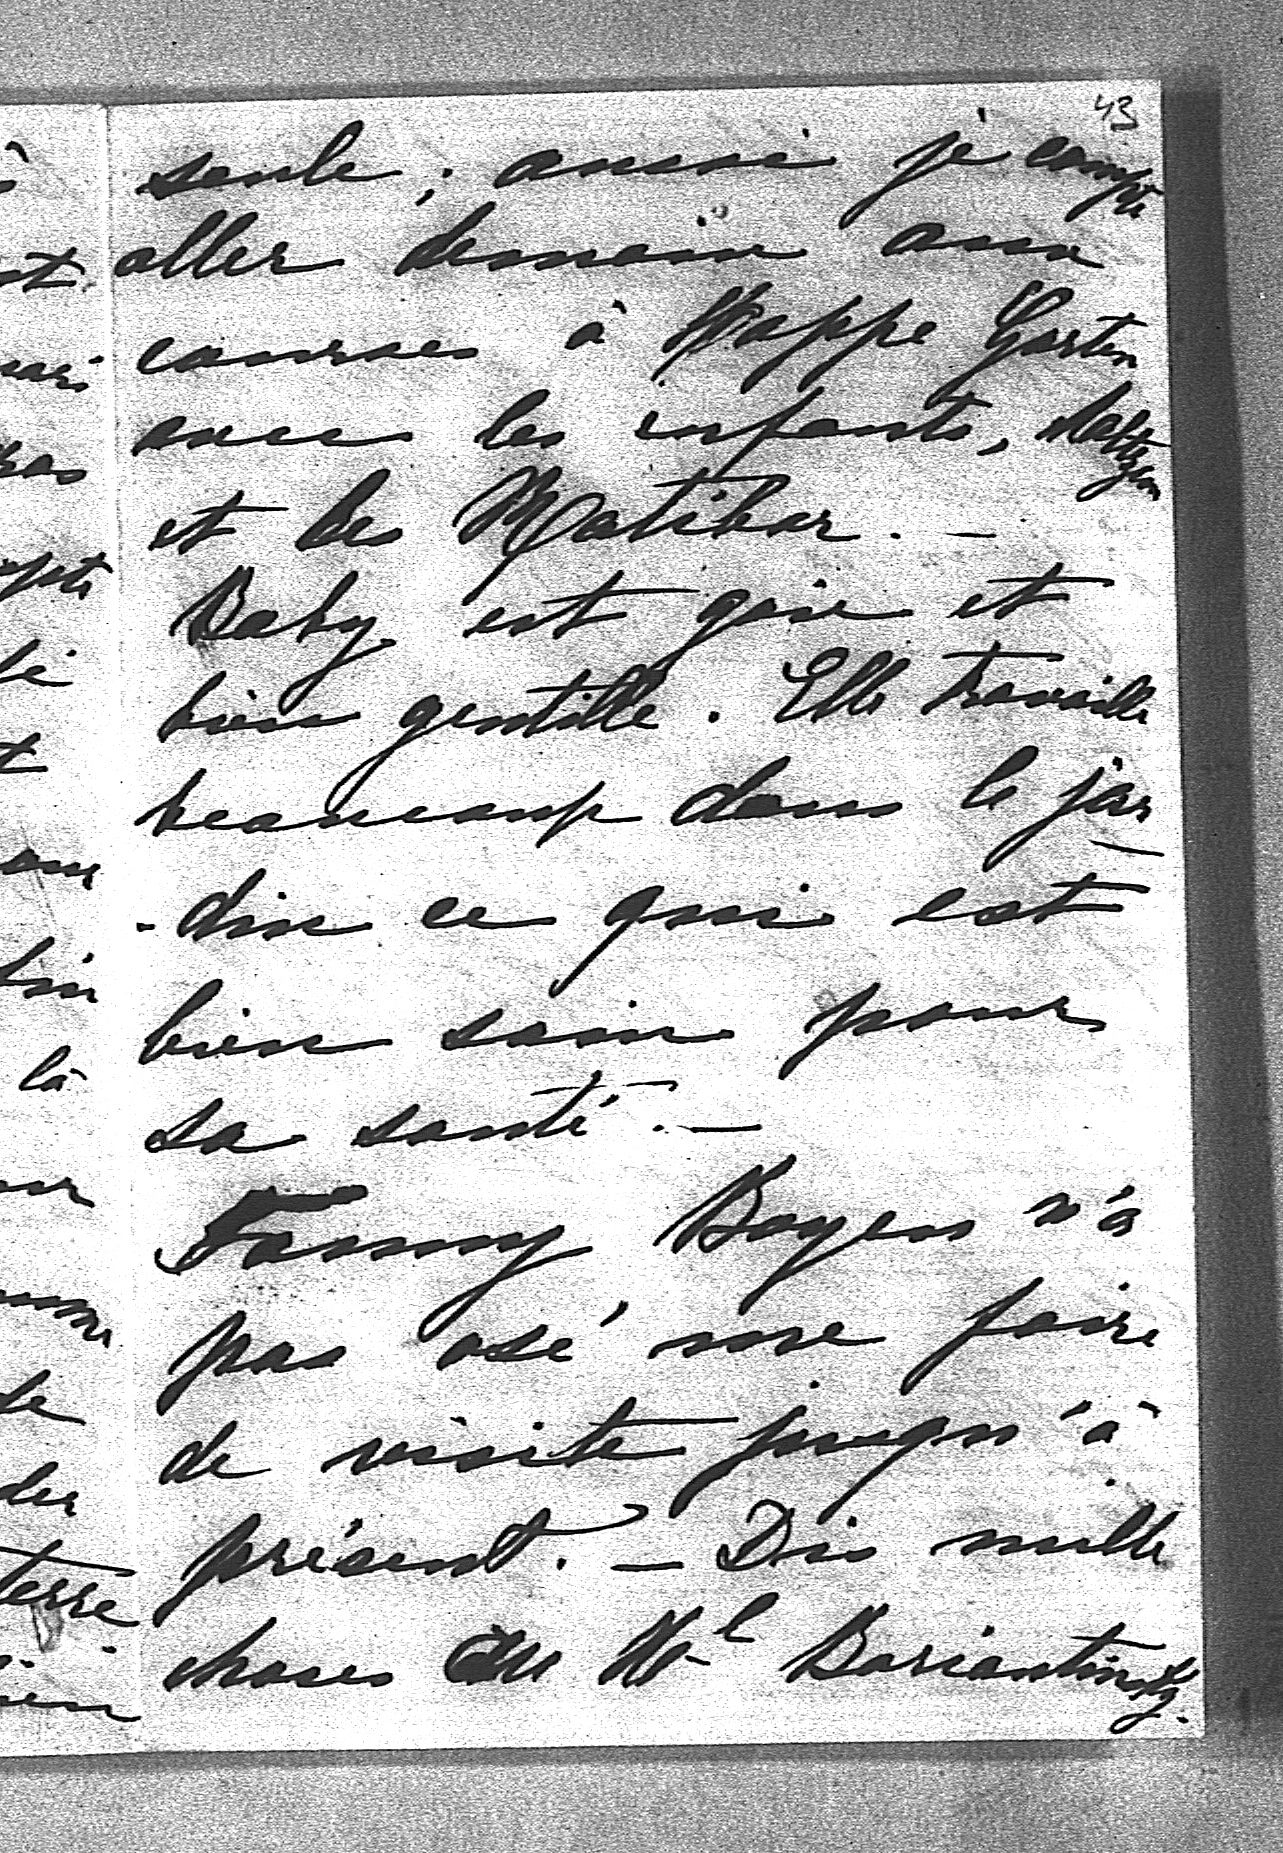 43
seule, aussi je compte
aller demain aux
courses à Hoppe Garten
avec les infants,
et les
Baby est gaie et
bien gentille. Elle travaille
beaucoup dans le jar
-din ce qui est
bien sain pour
sa santé. —
Fanny Boyen n'a
pas osé me faire
de visite jusqu'à
présent. — Dis mille
choses au Bariatinsky.
nt
pas
là
de
terre